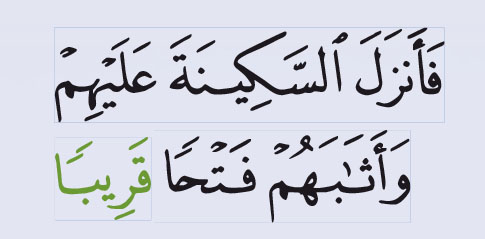 فَأَنزَلَ ٱلسَّكِينَةَ عَلَيْهِمْ
وَأَثَٰبَهُمْ فَتْحًا قَرِيبًا